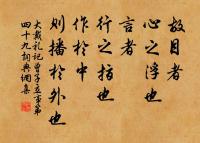 故目者
心之浮也
言者
行之指也
作於中
則播於外也
大戴礼記曾子立事第
四十九詞典網集